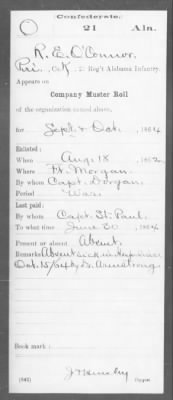 Confederate.
21 Ala.
R. E. O'Connor
Pri., Co. K, 21 Reg't Alabama Infantry.
Appears on
Company Muster Roll
of the organization named above,
for Sept & Oct, 1864
Enlisted:
When Aug. 18, 1862
Where Ft. Morgan
By whom Capt. Dorgan
Period War
Last paid:
By whom Capt. St. Paul
To what time June 30, 1864
Present or absent Absent
Remarks: Absent sick in Hosp. since
Oct. 15/64 by Dr. Armstrong.
Book mark:
(642) Copyist.